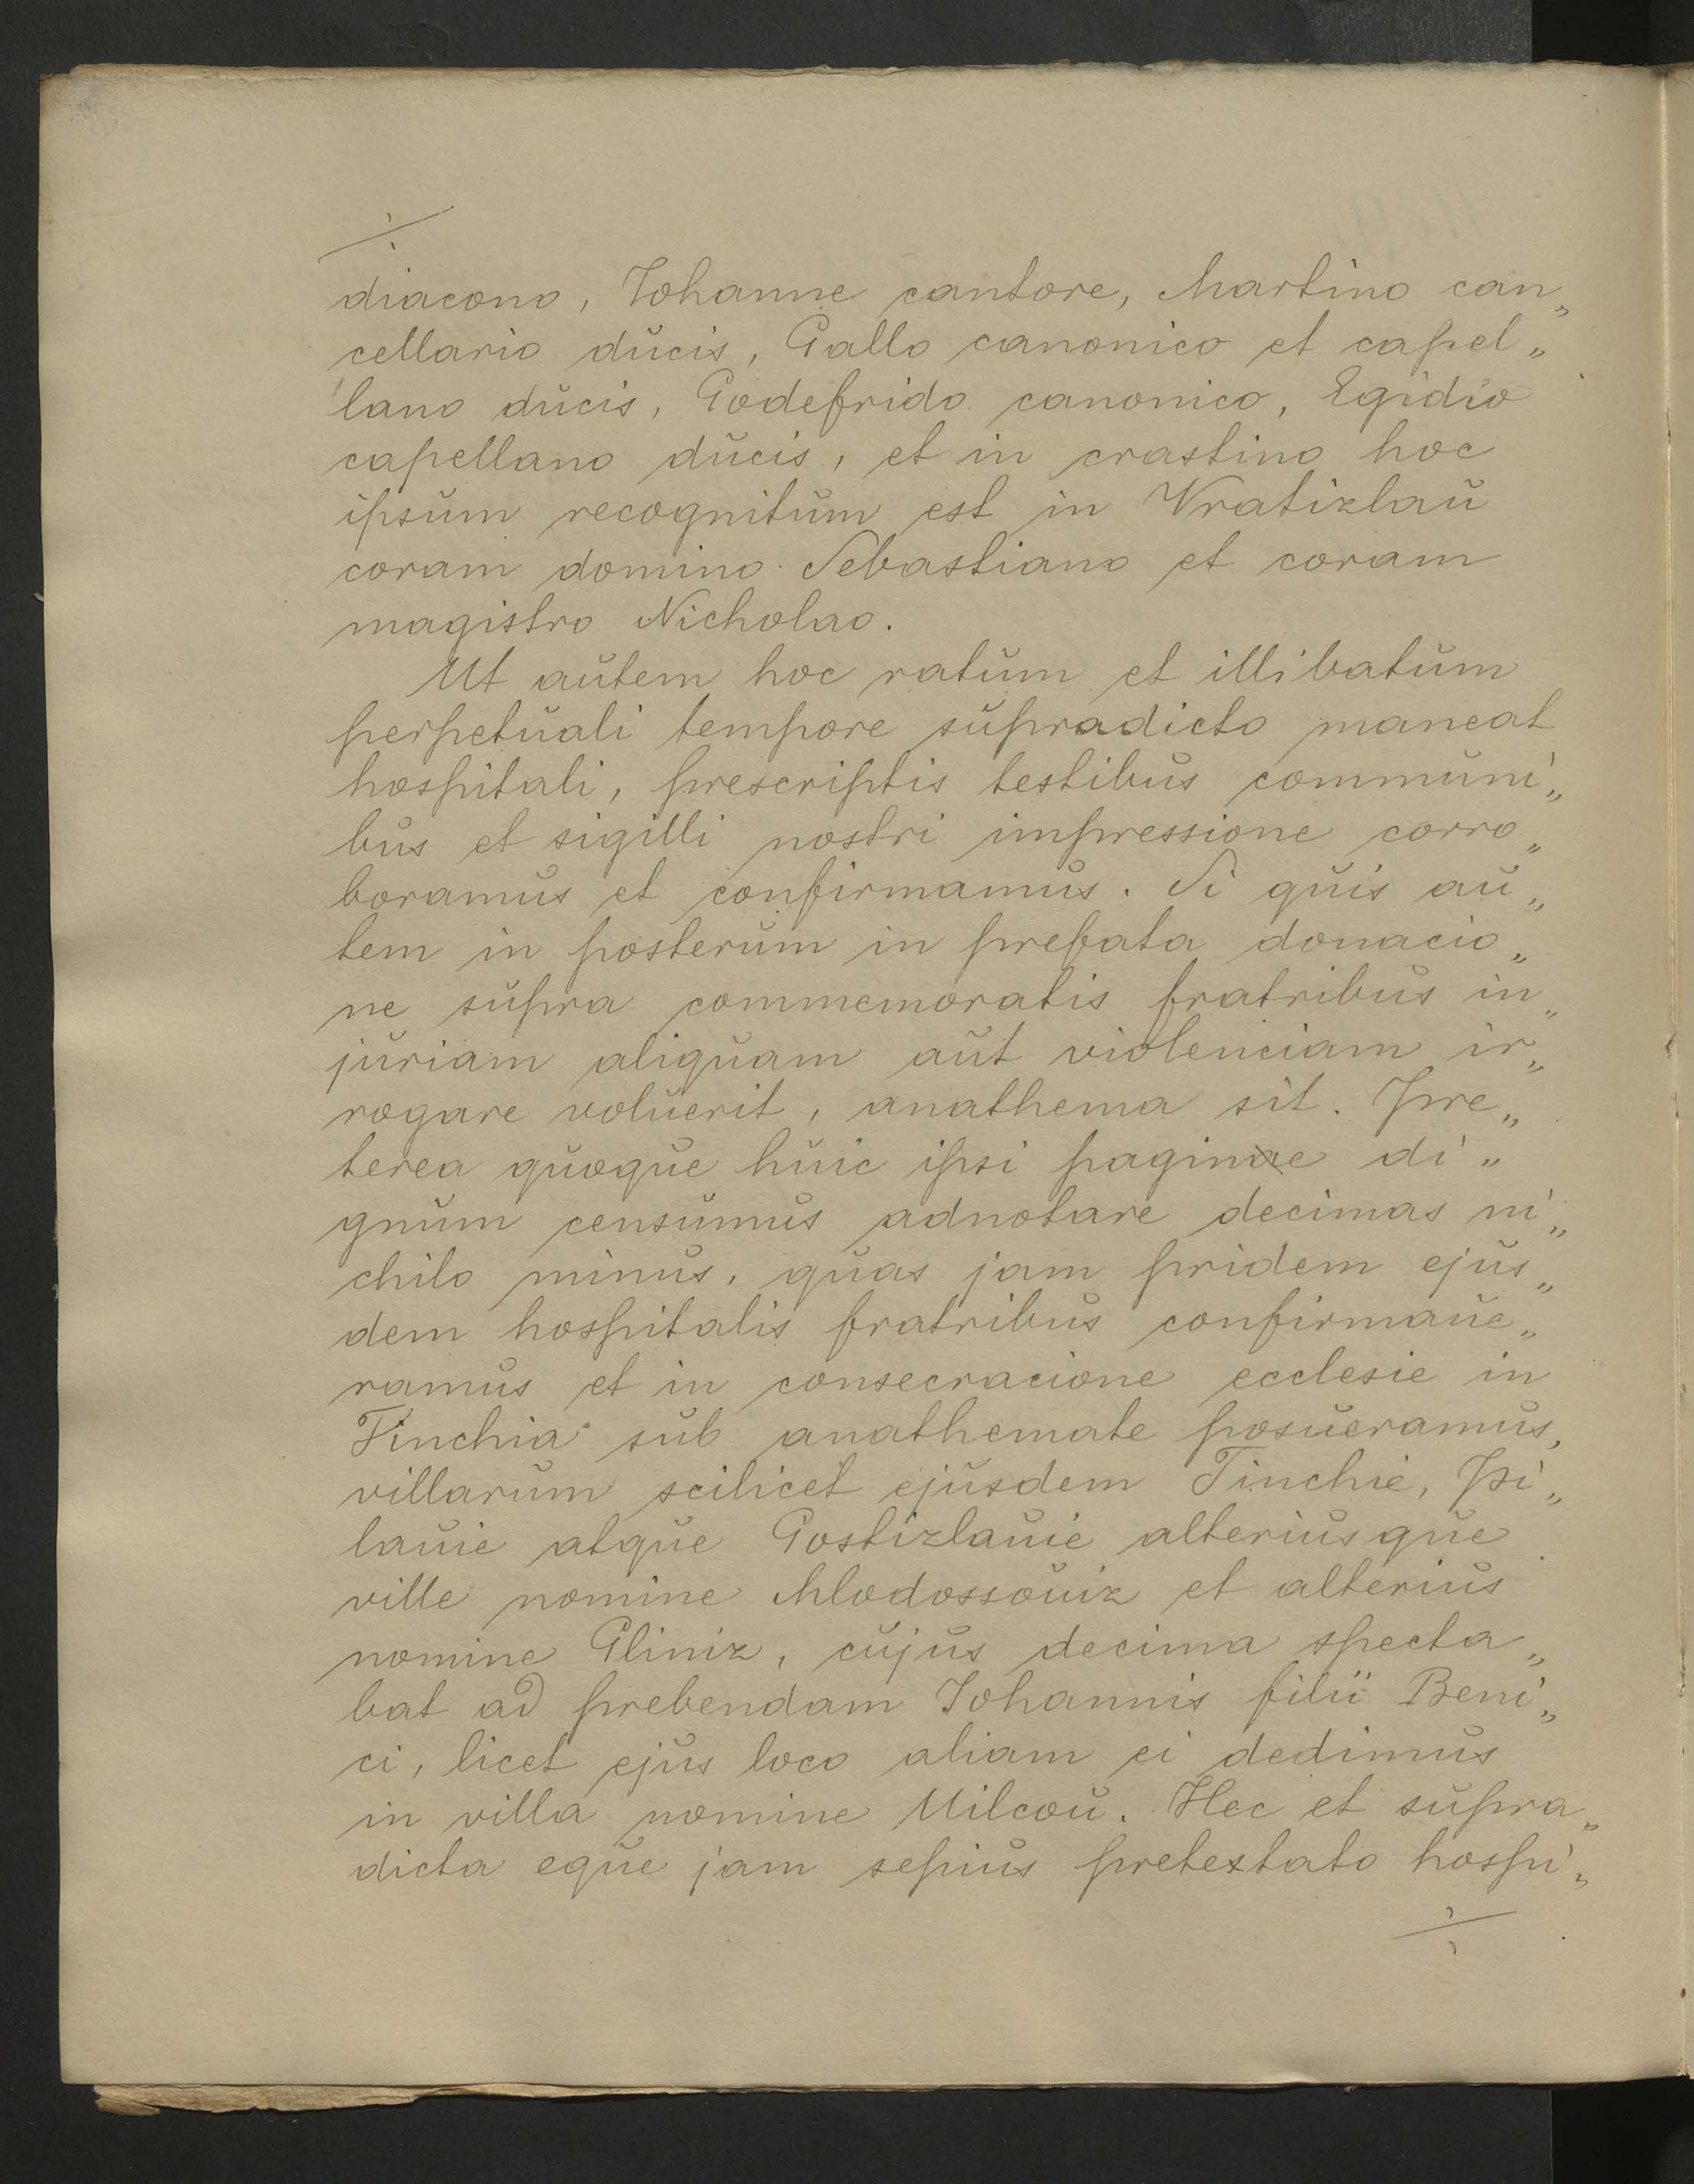 ./.
diacono, Johanne cantore, Martino can„
cellario ducis, Gallo canonico et capel„
lano ducis, Godefrido canonico, Egidio
capellano ducis, et in crastino hoc
ipsum recognitum est in Vratizlau
coram domino Sebastiano et coram
magistro Nicholao.
Ut autem hoc ratum et illibatum
perpetuali tempore supradicto maneat
hospitali, prescriptis testibus communi„
bus et sigilli nostri impressione corro„
boramus et confirmamus. Si quis au„
tem in posterum in prefata donacio„
ne supra commemoratis fratribus in„
juriam aliquam aut violenciam ir„
rogare voluerit, anathema sit. Pre„
terea quoque huic ipsi pagine di„
gnum censumus adnotare decimas ni„
chilo minus, quas jam pridem ejus„
dem hospitalis fratribus confirmaue„
ramus et in consecracione ecclesie in
Tinchia sub anathemate posueramus,
villarum scilicet ejusdem Tinchie, Pi„
lauie atque Gostizlauie alteriusque
ville nomine Mlodossouiz et alterius
nomine Gliniz, cujus decima specta„
bat ad prebendam Johannis filii Beni„
ci, licet ejus loco aliam ei dedimus
in villa nomine Milcou. Hec et supra„
dicta eque jam sepius pretextato hospi„
./.